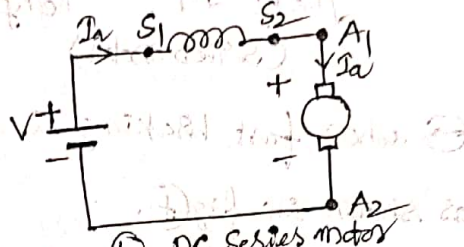 Ia S1 S2 A1
Ia
+
V +
-
-
A2
DC Series motor